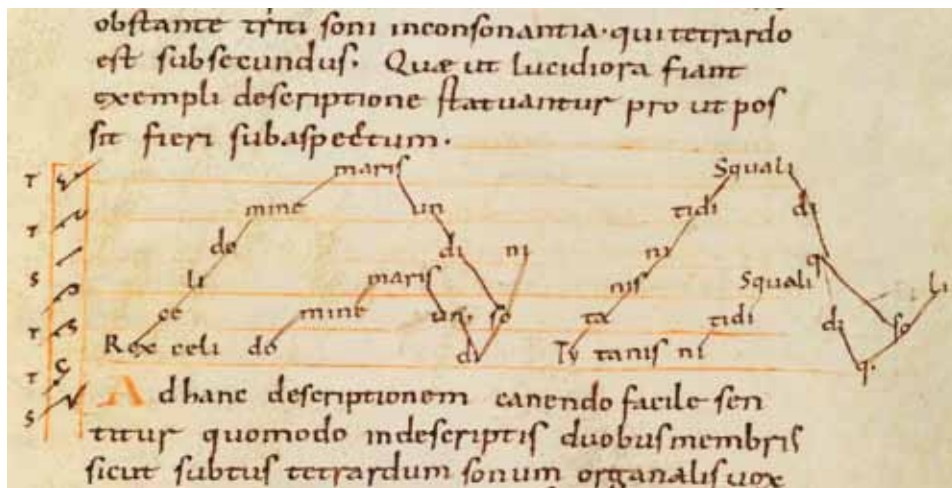 obstante triti soni inconsonantia· qui tetrardo
est subsecundus· Quæ ut lucidiora fiant
exempli descriptione statuantur pro ut pos
sit fieri sub aspectum·
maris Squali
T
mine un tidi di
T
do di ni ni q
S
li maris nis Squali li
ce mine un· so ta tidi di so
T
Rex celi do di Ty tanis ni q·
T
S
Ad hanc descriptionem canendo facile sen
titur quomodo in descriptis duobus membris
sicut subtus tetrardum sonum organalis vox